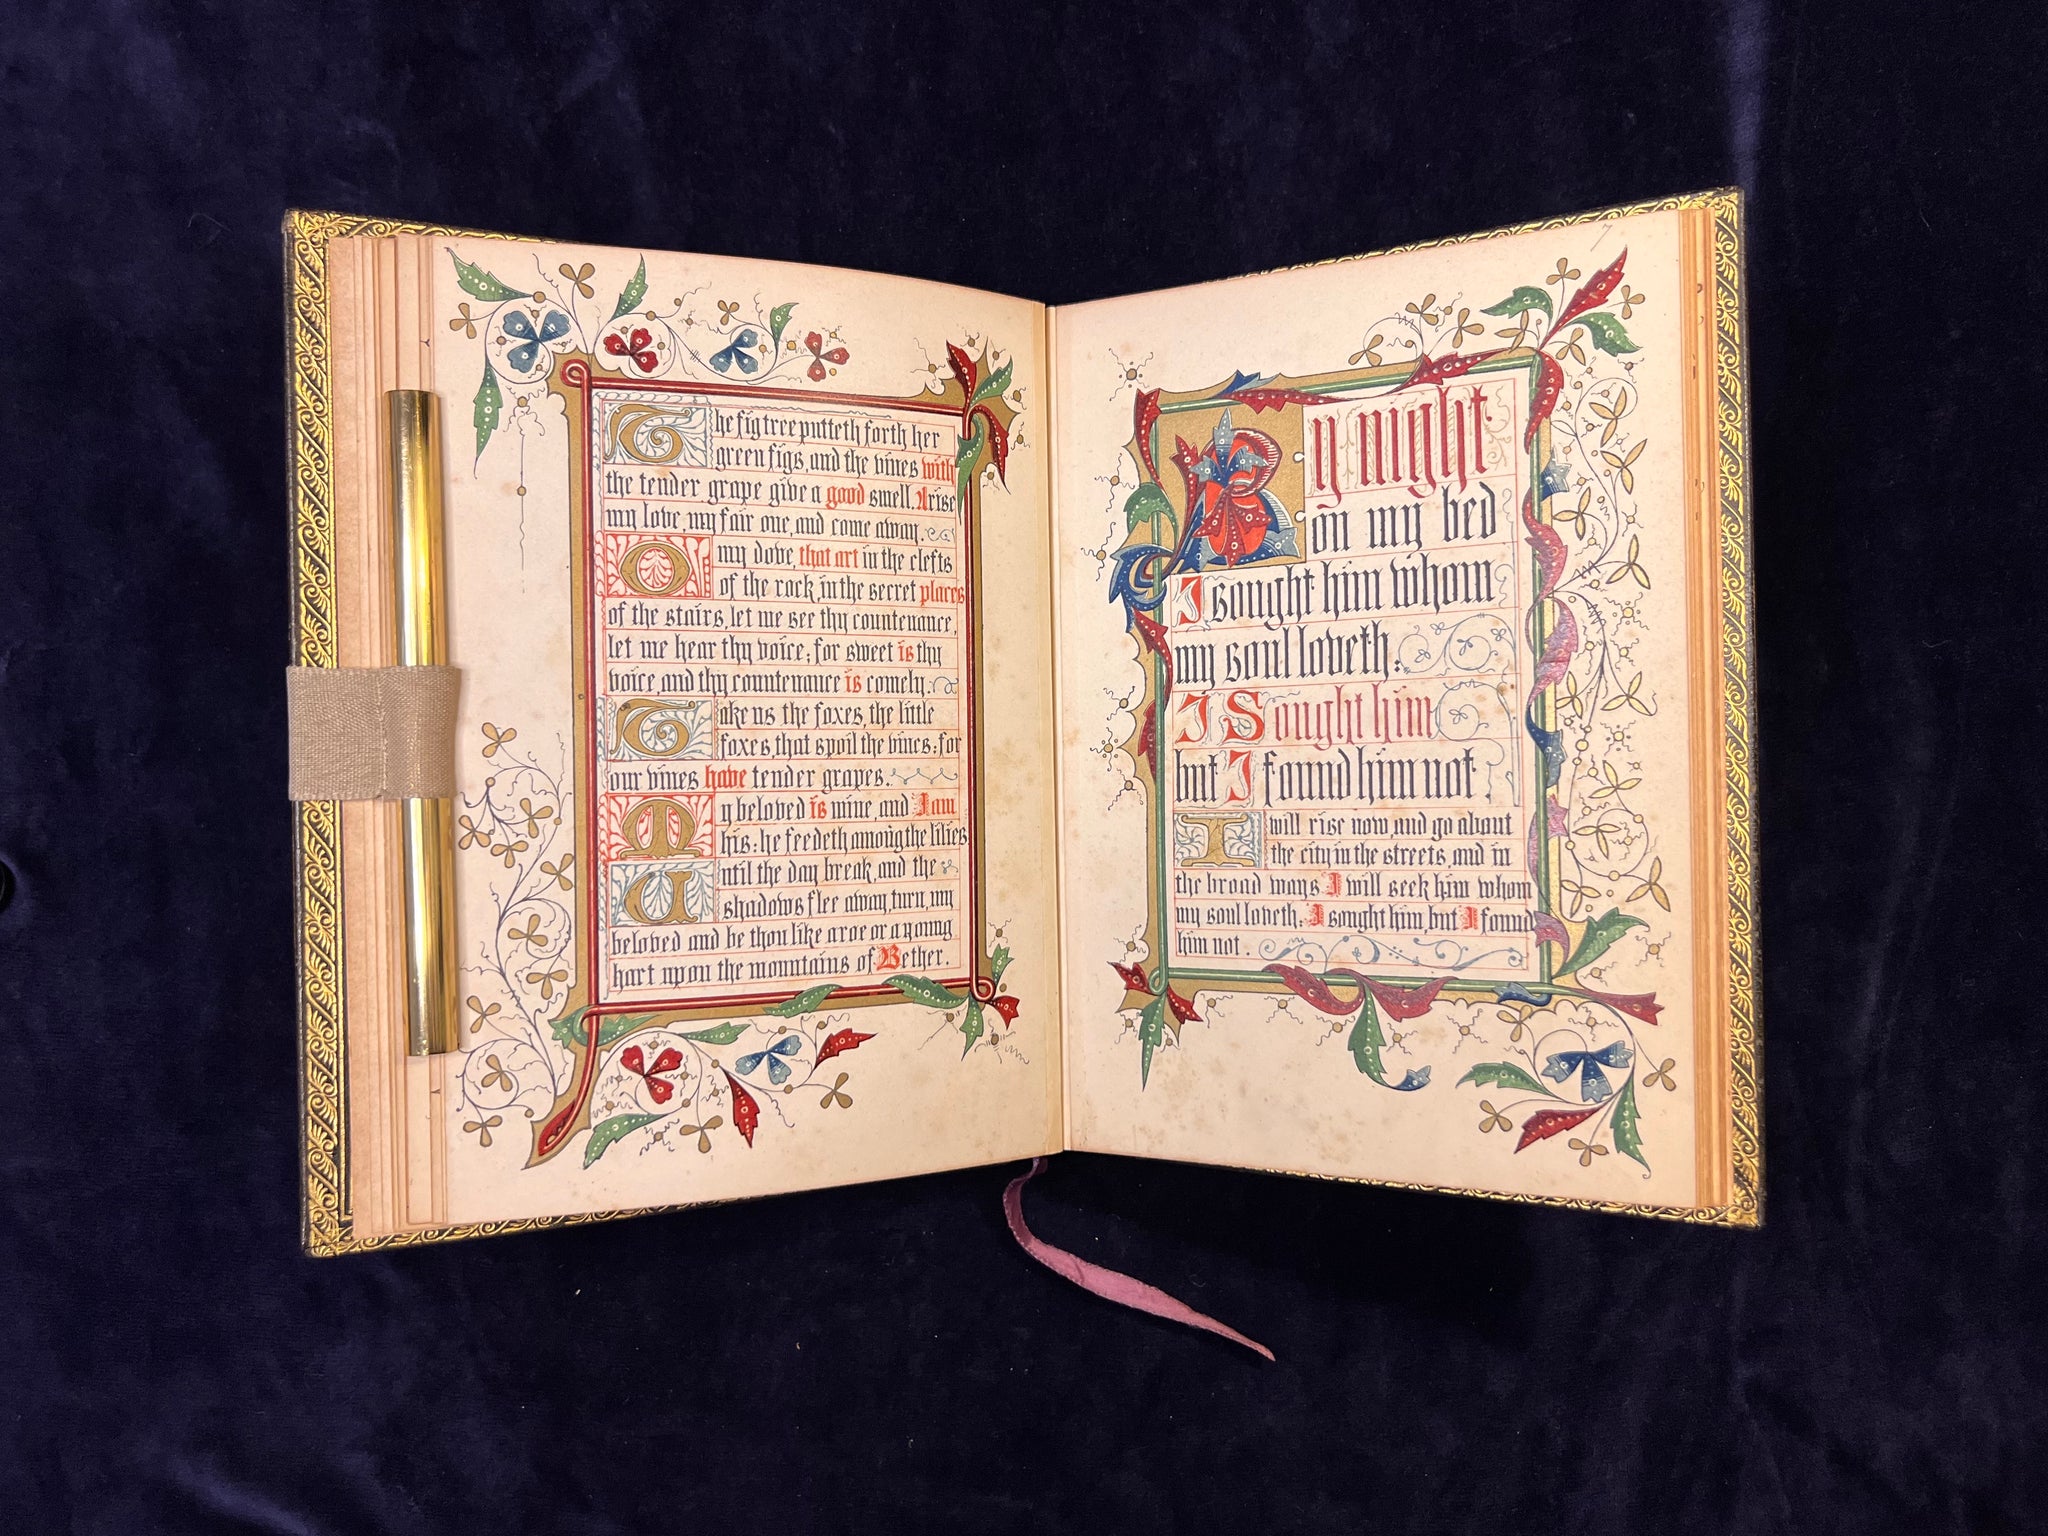 The fig tree putteth forth her
green figs, and the vines with
the tender grape give a good smell. Arise
my love, my fair one, and come away.
O my dove, that art in the clefts
of the rock, in the secret places
of the stairs, let me see thy countenance,
let me hear thy voice; for sweet is thy
voice, and thy countenance is comely.
Take us the foxes, the little
foxes, that spoil the vines: for
our vines have tender grapes.
My beloved is mine, and I am
his: he feedeth among the lilies
Until the day break, and the
shadows flee away, turn, my
beloved and be thou like a roe or a young
hart upon the mountains of Bether.
7
By night
on my bed
I sought him whom
my soul loveth:
I Sought him
but I found him not.
I will rise now, and go about
the city in the streets, and in
the broad ways I will seek him whom
my soul loveth: I sought him, but I found
him not.